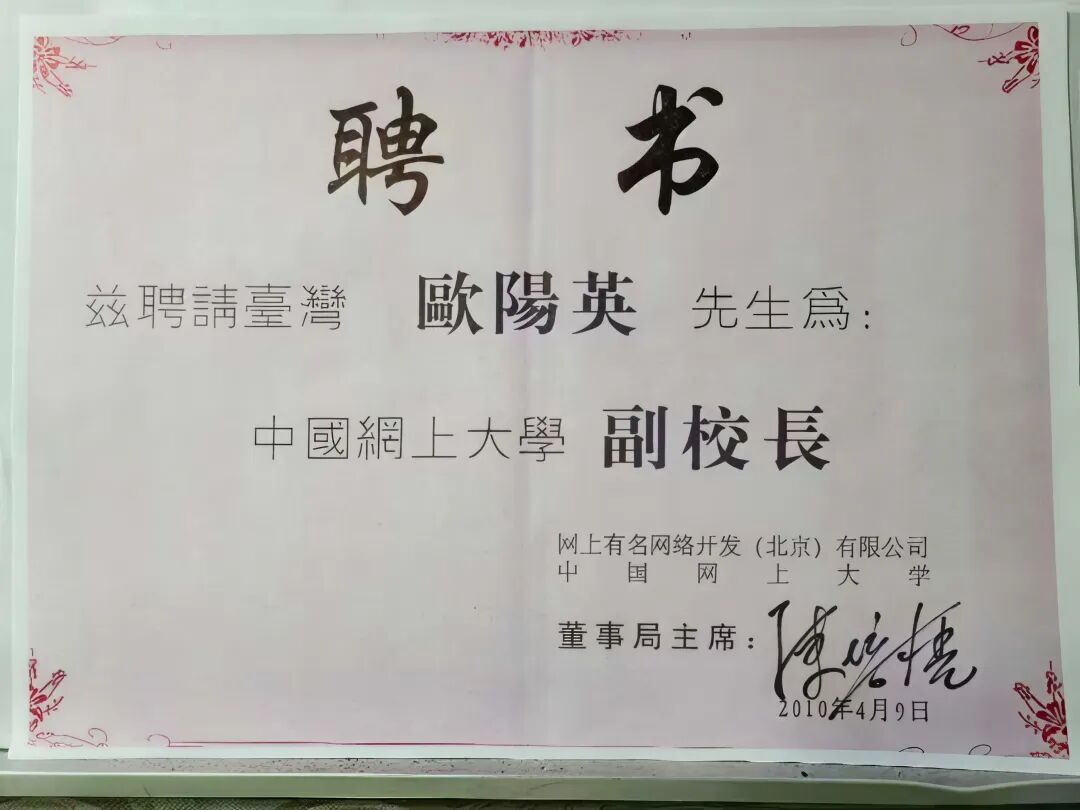 聘书
兹聘請臺灣 歐陽英 先生爲：
中國網上大學 副校長
网上有名网络开发（北京）有限公司
中国网上大学
董事局主席：
2010年4月9日